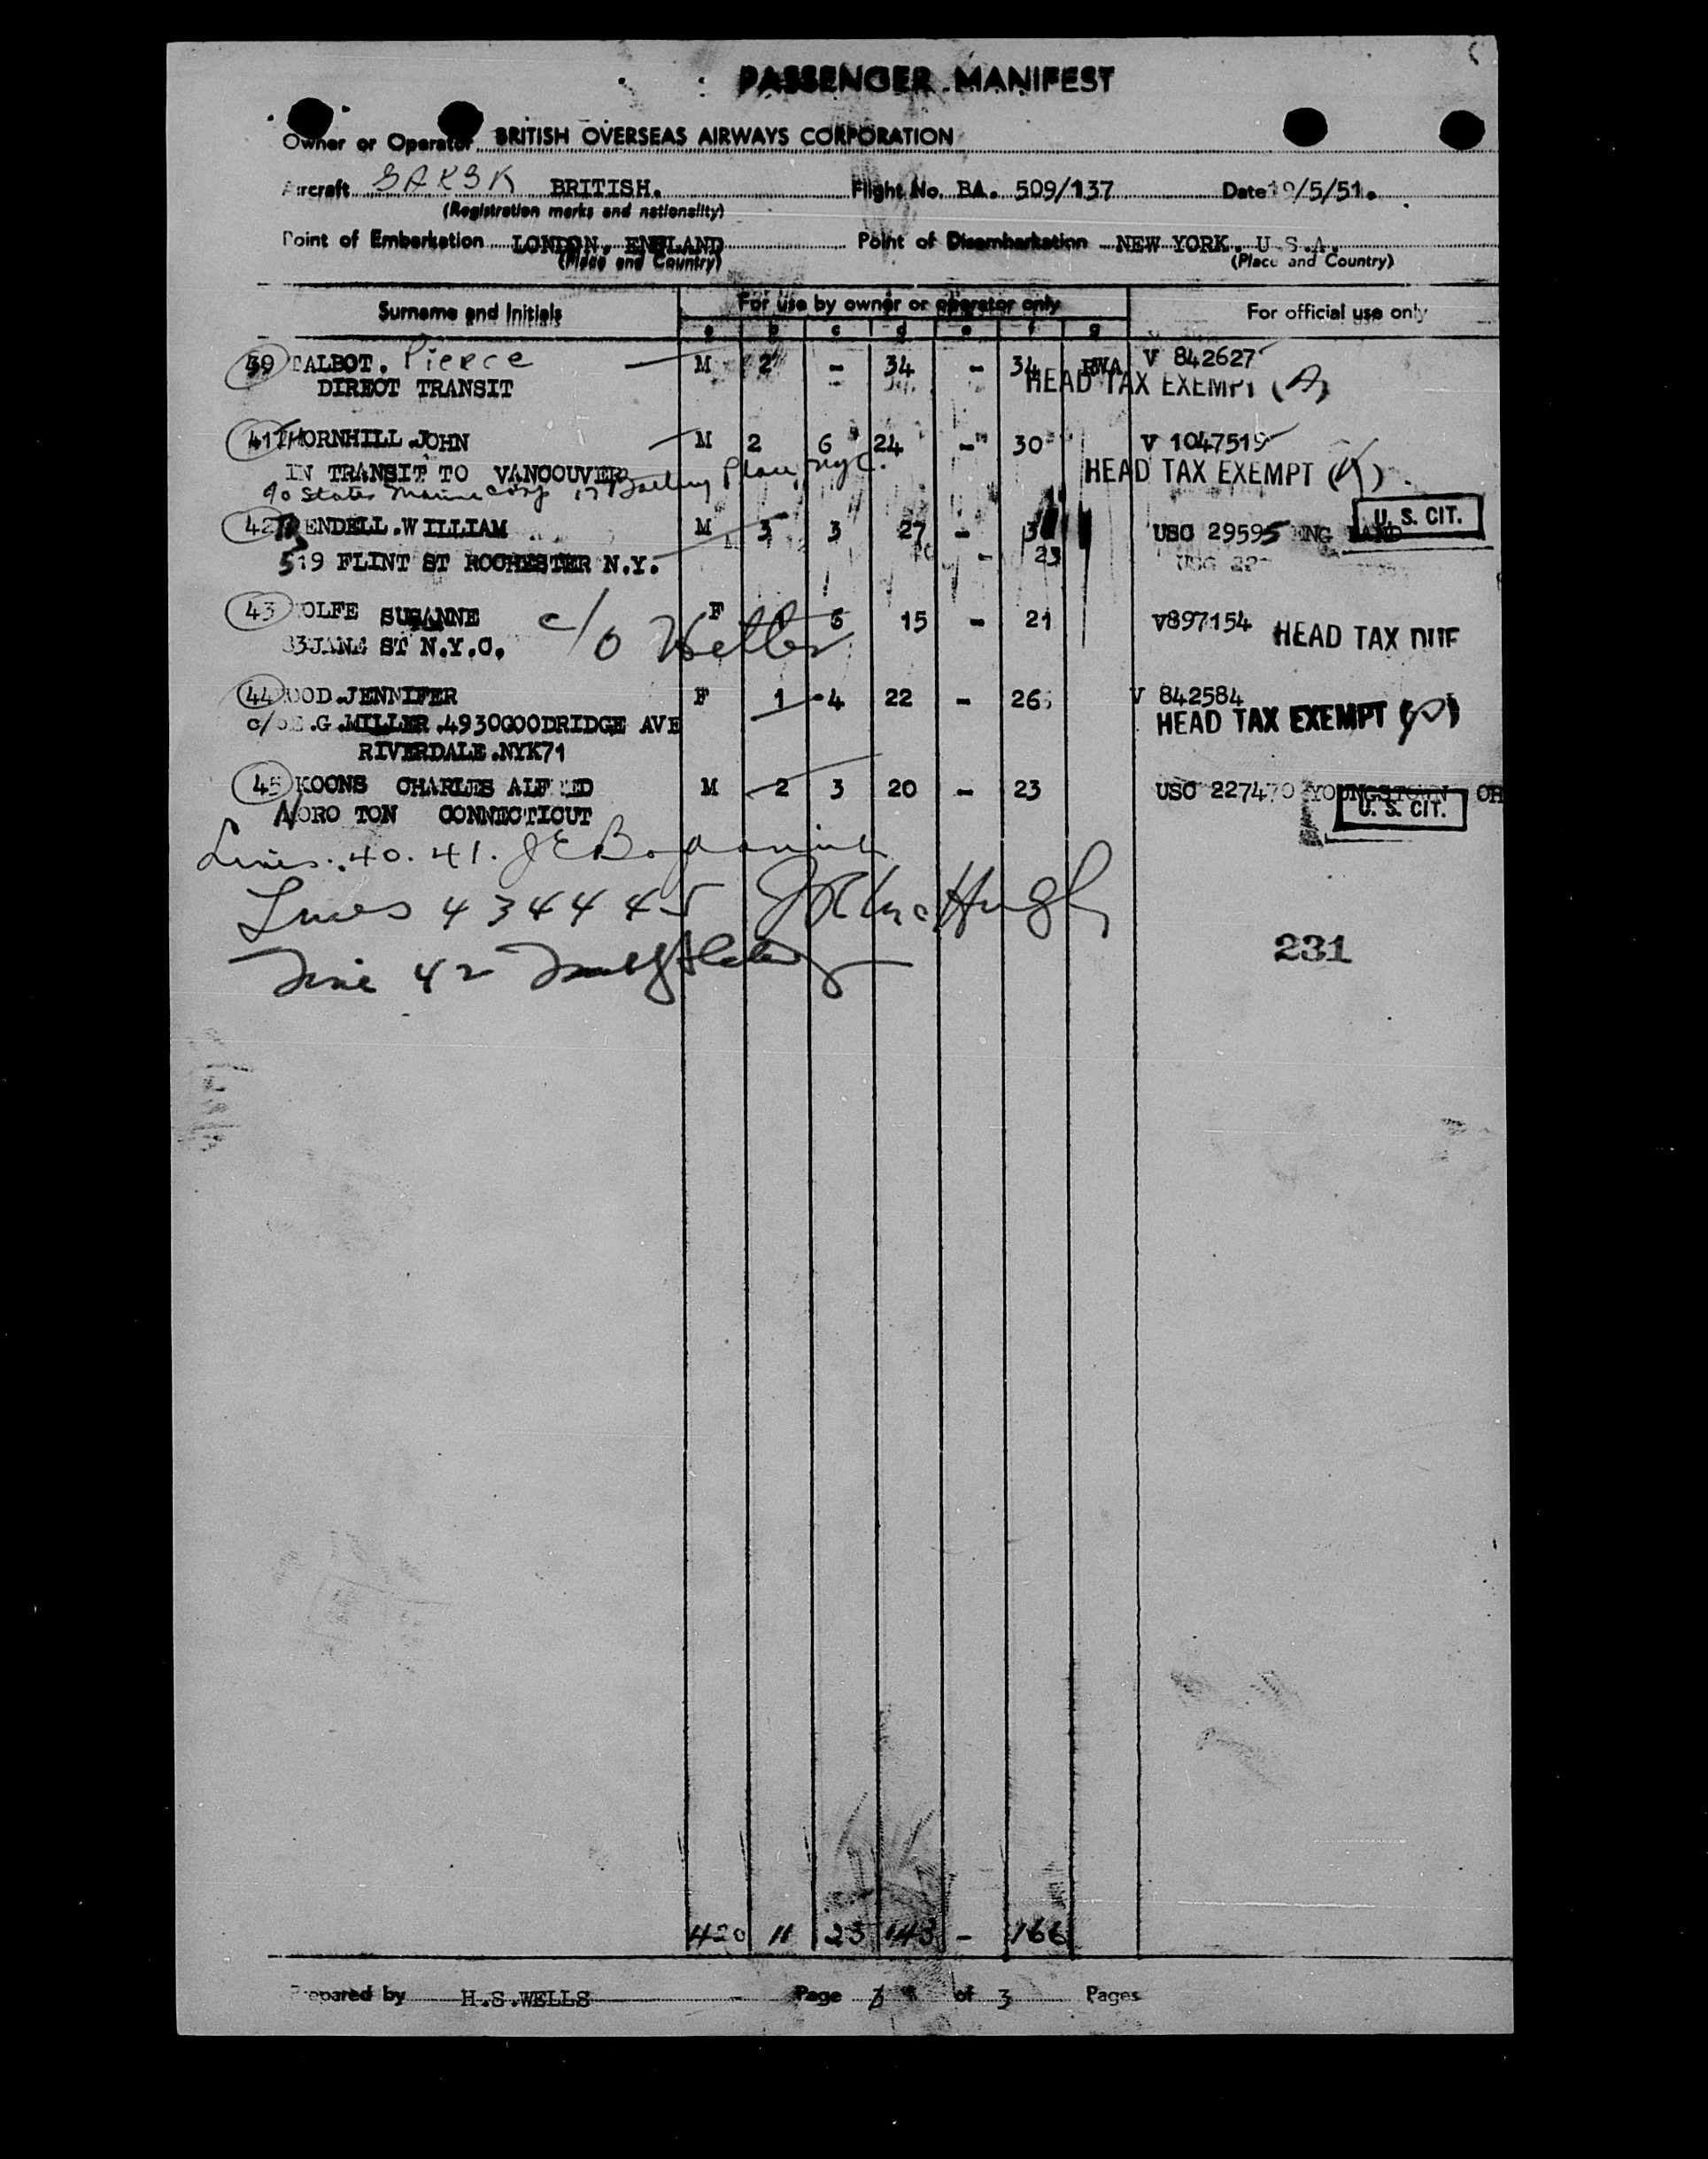 PASSENGER MANIFEST
Owner or Operator BRITISH OVERSEAS AIRWAYS CORPORATION
Aircraft BRITISH. Flight No. BA. 509/137 Date /5/51.
(Registration marks and nationality)
Point of Embarkation LONDON, ENGLAND Point of Disembarkation NEW YORK. U.S.A.
(Place and Country) (Place and Country)
Surname and Initials For use by owner or operator only For official use only
a b c d e f g
39 TALBOT. Pierce M 2 - 34 - 34 RWA V 842627
DIRECT TRANSIT HEAD TAX EXEMPT (A)
41 THORNHILL.JOHN M 2 6 24 - 30 V 1047519
IN TRANSIT TO VANCOUVER HEAD TAX EXEMPT
c/o States Marine Corp 17 Battery Place, NYC.
42 RENDELL.WILLIAM M 3 3 27 - USC 29595 U. S. CIT.
519 FLINT ST ROCHESTER N.Y. - 23
43 OLFE SUSANNE c/o F 6 15 - 21 V897154 HEAD TAX DUE
JANE ST N.Y.C.
44 OOD.JENNIFER F 1 4 22 - 26 V 842584
c/o .G.MILLER.4930GOODRIDGE AVE HEAD TAX EXEMPT
RIVERDALE.NYK71
45 KOONS CHARLES ALF ED M 2 3 20 - 23 USC 227470 YOUNGSTOWN OH
NORO TON CONNECTICUT U. S. CIT.
Lines. 40. 41.
Lines 43 44 45 McHugh
Line 42
231
420 11 23 143 - 166
Prepared by H.S.WELLS Page of 3 Pages